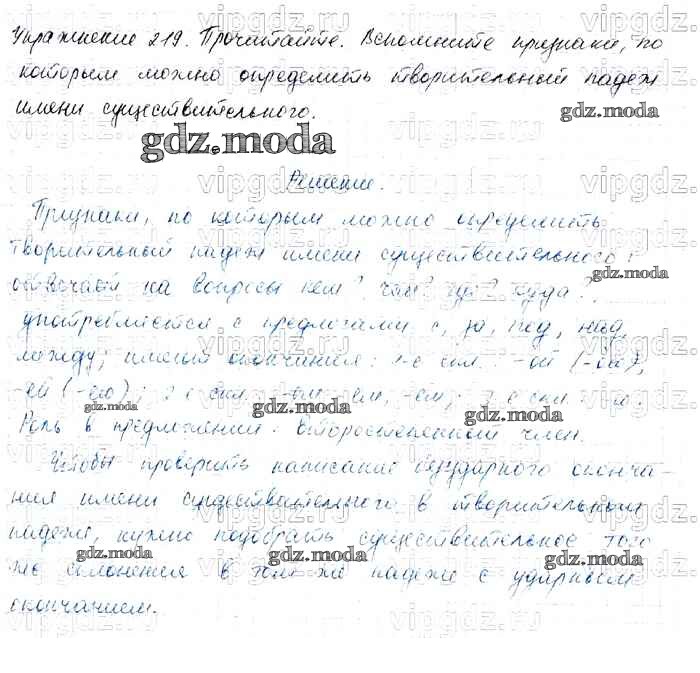 Упражнение 219. Прочитайте. Вспомните признаки, по
которым можно определить творительный падеж
имени существительного.
gdz.moda
gdz.moda
Решение.
Признаки, по которым можно определить
творительный падеж имени существительного:
отвечает на вопросы кем? чем? где? куда?,
gdz.moda
употребляется с предлогами с, за, под, над,
между; имеет окончания: 1-е скл. -ой (-ою),
-ей (-ею); 2-е скл. -ом, -ем, -ём; 3-е скл.
gdz.moda gdz.moda gdz.moda
Роль в предложении - второстепенный член.
Чтобы проверить написание безударного оконча-
ния имени существительного в творительном
падеже, нужно подобрать существительное того
gdz.moda gdz.moda gdz.moda
же склонения в том же падеже с ударным
окончанием.
vipgdz.ru